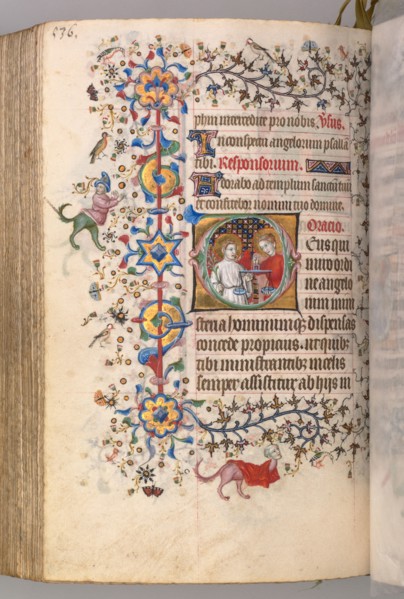 536.
phim intercedite pro nobis. Vsus.
In conspectu angelorum psallā
tibi. Responsorium.
Adorabo ad templum sanctū tuū
et confitebor nomini tuo domine.
Oratio.
Eus qui
miro ordi
ne angelo
rum mini
steria hominumq; dispensas
concede propicius. ut quib;
tibi ministrantib; in celis
semper assistitur ab hijs in